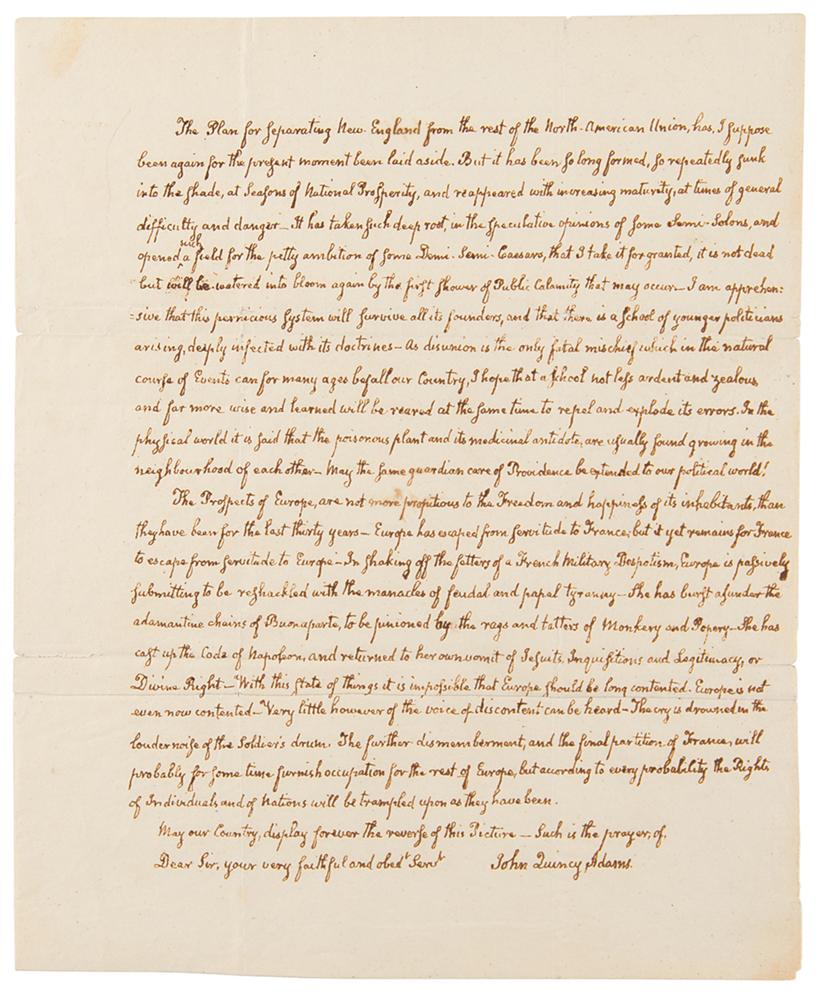 The Plan for separating New-England from the rest of the North-American Union, has, I suppose
been again for the present moment been laid aside. But it has been so long formed, so repeatedly sunk
into the shade, at Seasons of National Prosperity, and reappeared with increasing maturity, at times of general
difficulty and danger — It has taken such deep root, in the speculative opinions of some Semi-Solons, and
opened a rich field for the petty ambition of some Demi-Semi-Caesars, that I take it for granted, it is not dead
but will be watered into bloom again by the first shower of Public Calamity that may occur — I am apprehen=
=sive that this pernicious System will survive all its founders, and that there is a school of younger politicians
arising, deeply infected with its doctrines — As disunion is the only fatal mischief which in the natural
course of Events can for many ages befall our Country, I hope that a school not less ardent and zealous,
and far more wise and learned will be reared at the same time to repel and explode its errors. In the
physical world it is said that the poisonous plant and its medicinal antidote, are usually found growing in the
neighbourhood of each other — May the same guardian care of Providence be extended to our political world!
The Prospects of Europe, are not more propitious to the Freedom and happiness of its inhabitants, than
they have been for the last thirty years — Europe has escaped from servitude to France; but it yet remains for France
to escape from servitude to Europe — In shaking off the fetters of a French Military Despotism, Europe is passively
submitting to be reshackled with the manacles of feudal and papal tyranny — She has burst asunder the
adamantine chains of Buonaparte, to be pinioned by the rags and tatters of Monkery and Popery — She has
cast up the Code of Napoleon, and returned to her own vomit of Jesuits, Inquisitions and Legitimacy, or
Divine Right — With this state of things it is impossible that Europe should be long contented. Europe is not
even now contented — Very little however of the voice of discontent can be heard — The cry is drowned in the
louder noise of the Soldier's drum. The further dismemberment, and the final partition of France, will
probably for some time furnish occupation for the rest of Europe, but acording to every probability the Rights
of Individuals and of Nations will be trampled upon as they have been.
May our Country, display forever the reverse of this Picture — Such is the prayer, of,
Dear Sir, your very faithful and obedt Servt John Quincy Adams.